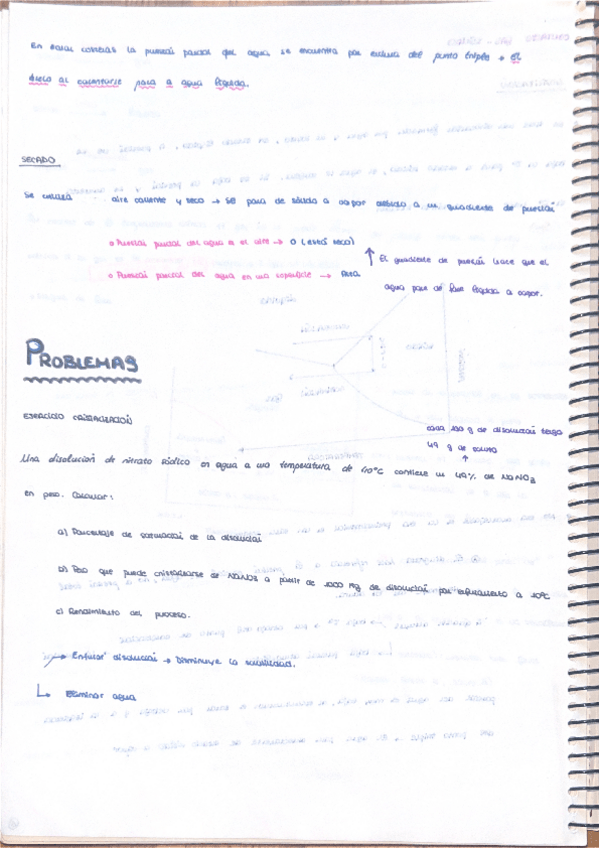 En estas condicións la presión parcial del agua se encuentra por encima del punto triple → el
hielo al calentarse pasa a agua líquida.
SECADO
Se utiliza aire caliente y seco → se pasa de sólido a vapor debido a un gradiente de presión
o Presión parcial del agua en el aire → 0 (está seco)
o Presión parcial del agua en una superficie → Alta
↑ El gradiente de presión hace que el
agua pase de fase líquida a vapor.
PROBLEMAS
EJERCICIO CRISTALIZACIÓN
cada 100 g de disolución tengo
49 g de soluto
Una disolución de nitrato sódico en agua a una temperatura de 40°C contiene un 49% de NaNO3
en peso. Calcular:
a) Porcentaje de saturación de la disolución
b) Peso que puede cristalizarse de NaNO3 a partir de 1000 Kg de disolución por enfriamiento a 10°C
c) Rendimiento del proceso.
→ Enfriar disolución → Disminuye la solubilidad.
↳ Eliminar agua